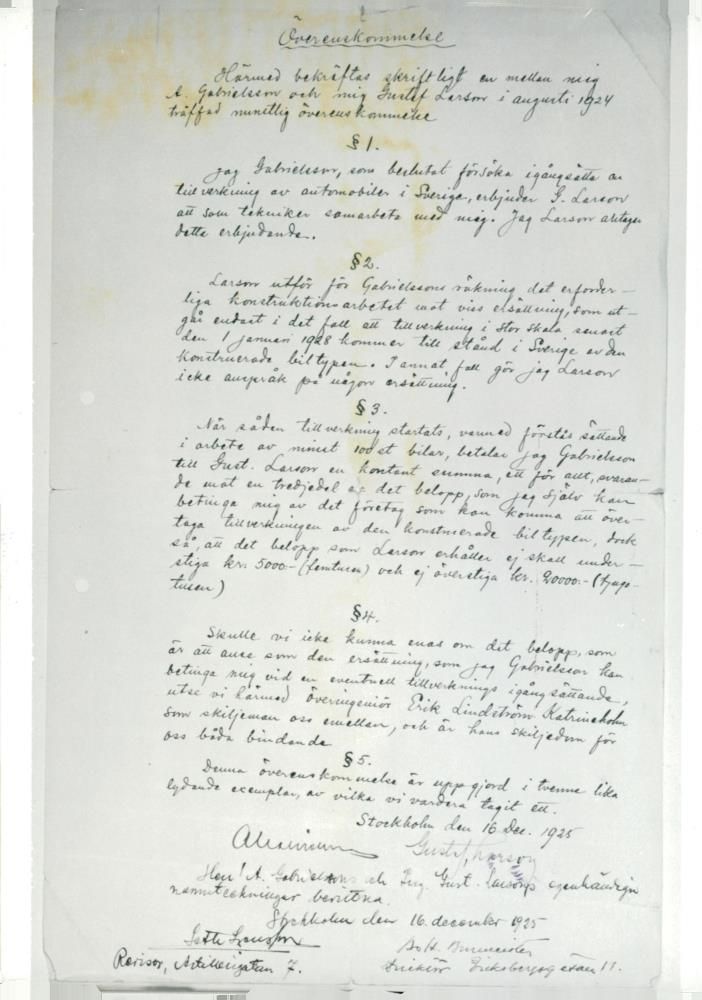 Överenskommelse
Härmed bekräftas skriftligt en mellan mig
A. Gabrielsson och mig Gustaf Larson i augusti 1924
träffad muntlig överenskommelse
§ 1.
Jag Gabrielsson, som beslutat försöka igångsätta en
tillverkning av automobiler i Sverige, erbjuder G. Larson
att som tekniker samarbeta med mig. Jag Larson antager
detta erbjudande.
§ 2.
Larson utför för Gabrielssons räkning det erforder-
liga konstruktionsarbetet mot viss ersättning, som ut-
går endast i det fall att tillverkning i stor skala senast
den 1 januari 1928 kommer till stånd i Sverige av den
konstruerade biltypen. I annat fall gör jag Larson
icke anspråk på någon ersättning.
§ 3.
När sådan tillverkning startats, varmed förstås sättande
i arbete av minst 100 st bilar, betalar jag Gabrielsson
till Gust. Larson en kontant summa, ett för allt, svaran-
de mot en tredjedel av det belopp, som jag själv kan
betinga mig av det företag som kan komma att över-
taga tillverkningen av den konstruerade biltypen, dock
så, att det belopp som Larson erhåller ej skall under-
stiga kr. 5000:- (femtusen) och ej överstiga kr. 20000:- (tjugo-
tusen)
§ 4.
Skulle vi icke kunna enas om det belopp, som
är att anse som den ersättning, som jag Gabrielsson kan
betinga mig vid en eventuell tillverknings igångsättande,
utse vi härmed överingeniör Erik Lindström Katrineholm
som skiljeman oss emellan, och är hans skiljedom för
oss båda bindande
§ 5.
Denna överenskommelse är uppgjord i tvenne lika
lydande exemplar, av vilka vi vardera tagit ett.
Stockholm den 16 Dec. 1925
Gustaf Larson
Herr A. Gabrielssons och Ing. Gust. Larsons egenhändiga
namnteckningar bevittna
Stockholm den 16. december 1925
Revisor, Artillerigatan 7.
Eriksbergsgatan 11.